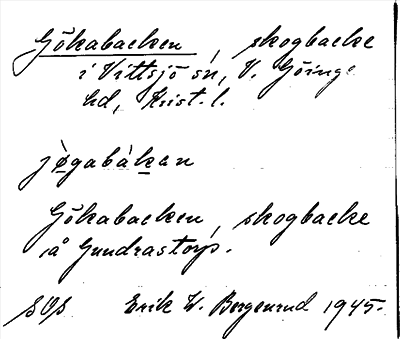 Gökabacken, skogbacke
i Vittsjö sn, V. Göinge
hd, Krist. l.
jø̀gabàkan
Gökabacken, skogbacke
på Gundrastorp.
Erik W. Bergenrud 1945.